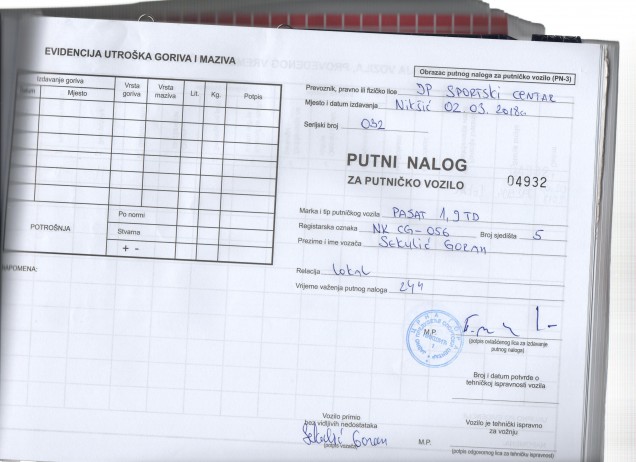 EVIDENCIJA UTROŠKA GORIVA I MAZIVA
Izdavanje goriva
Datum
Mjesto
Vrsta goriva
Vrsta maziva
Lit.
Kg.
Potpis
POTROŠNJA
Po normi
Stvarna
+ -
NAPOMENA:
Obrazac putnog naloga za putničko vozilo (PN-3)
Prevoznik, pravno ili fizičko lice DP SPORTSKI CENTAR
Mjesto i datum izdavanja Nikšić 02.03.2018
Serijski broj 032
PUTNI NALOG
ZA PUTNIČKO VOZILO 04932
Marka i tip putničkog vozila PASAT 1,9 TD
Ragistarska oznaka NK CG-056 Broj sjedišta 5
Prezime i ime vozača Sekulić Goran
Relacija Lokal
Vrijeme važenja putnog naloga
M.P.
(potpis ovlašćenog lica za izdavanje
putnog naloga)
Broj i datum potvrde o
tehničkoj ispravnosti vozila
Vozilo primio
bez vidljivih nedostataka
Sekulić Goran
(potpis vozača)
M.P.
Vozilo je tehnički ispravno
za vožnju
(potpis odgovornog lica za tehničku ispravnost)